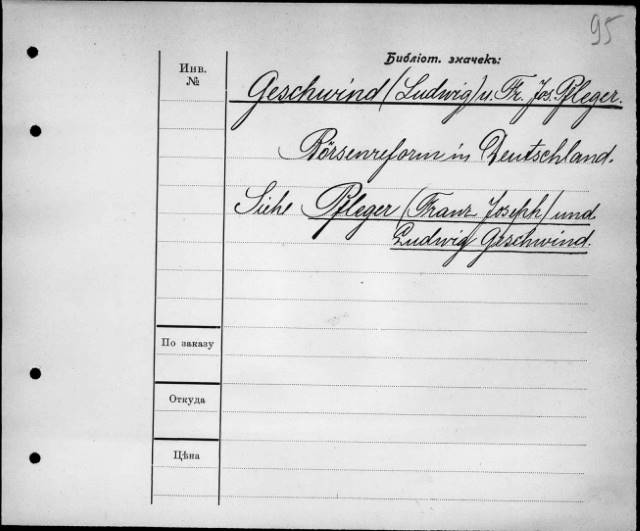 95
Библіот. значекъ:
Инв.
№
Geschwind (Ludwig) u. Fr. Jos. Pfleger.
Börsenreform in Deutschland.
Siehe Pfleger (Franz Joseph) und
Ludwig Geschwind.
По заказу
Откуда
Цѣна